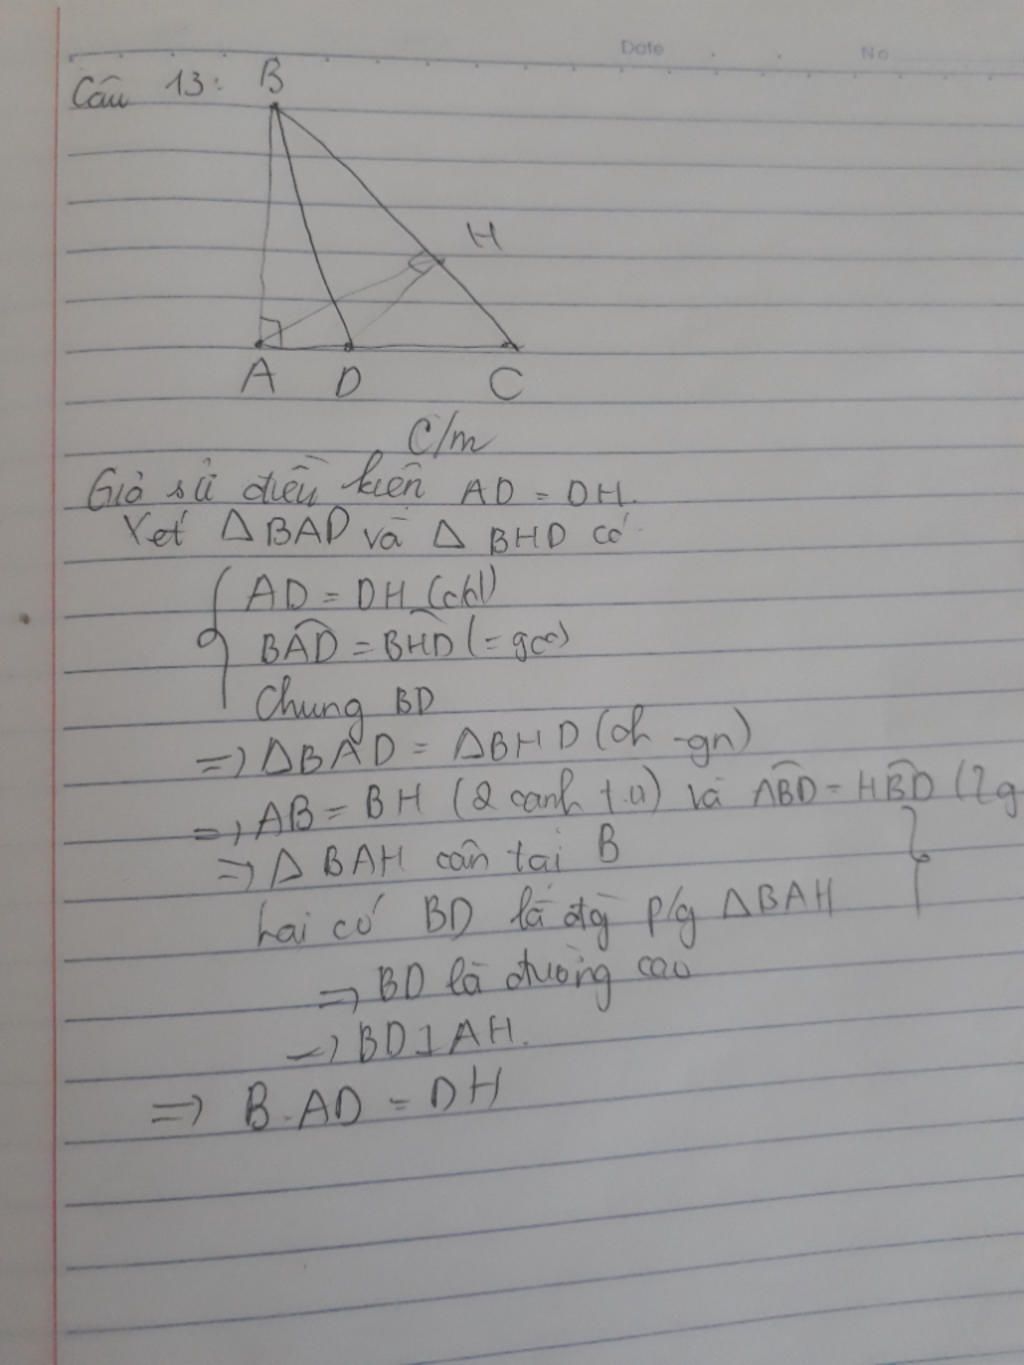 Date No
Câu 13: B
H
A D C
C/m
Giả sử điều kiện AD = DH.
Xét △BAD và △ BHD có
AD = DH (cht)
BAD = BHD (= 90°)
Chung BD
=> △BAD = △BHD (ch -gn)
=> AB = BH (2 cạnh t.ư) và ABD = HBD (2 g
=> △ BAH cân tại B
Lại có BD là đg p/g △BAH
=> BD là đường cao
=> BD⊥AH.
=> B. AD = DH